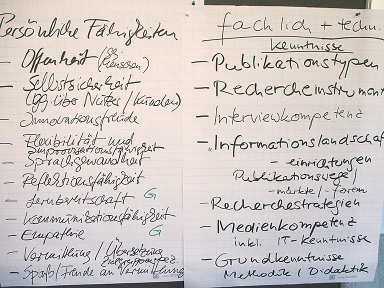 Persönliche Fähigkeiten
– Offenheit (ge. Menschen)
– Selbstsicherheit
(ggüber Nutzer/Kunden)
– Innovationsfreude
– Flexibilität und
Improvisationsfähigkeit
– Sprachgewandheit
– Reflektionsfähigkeit
– Lernbereitschaft G
– Kommunikationsfähigkeit
– Empathie G
– Vermittlung / Übersetzung
– Spaß / Freude an Vermittlung
fachlich + techn.
Kenntnisse
– Publikationstypen
– Rechercheinstrument
– Interviewkompetenz
– Informationslandschaf
– einrichtungen
Publikationswege /
– märkte / – formen
– Recherchestrategien
– Medienkompetenz
inkl. IT-Kenntnisse
– Grundkenntnisse
Methodik / Didaktik